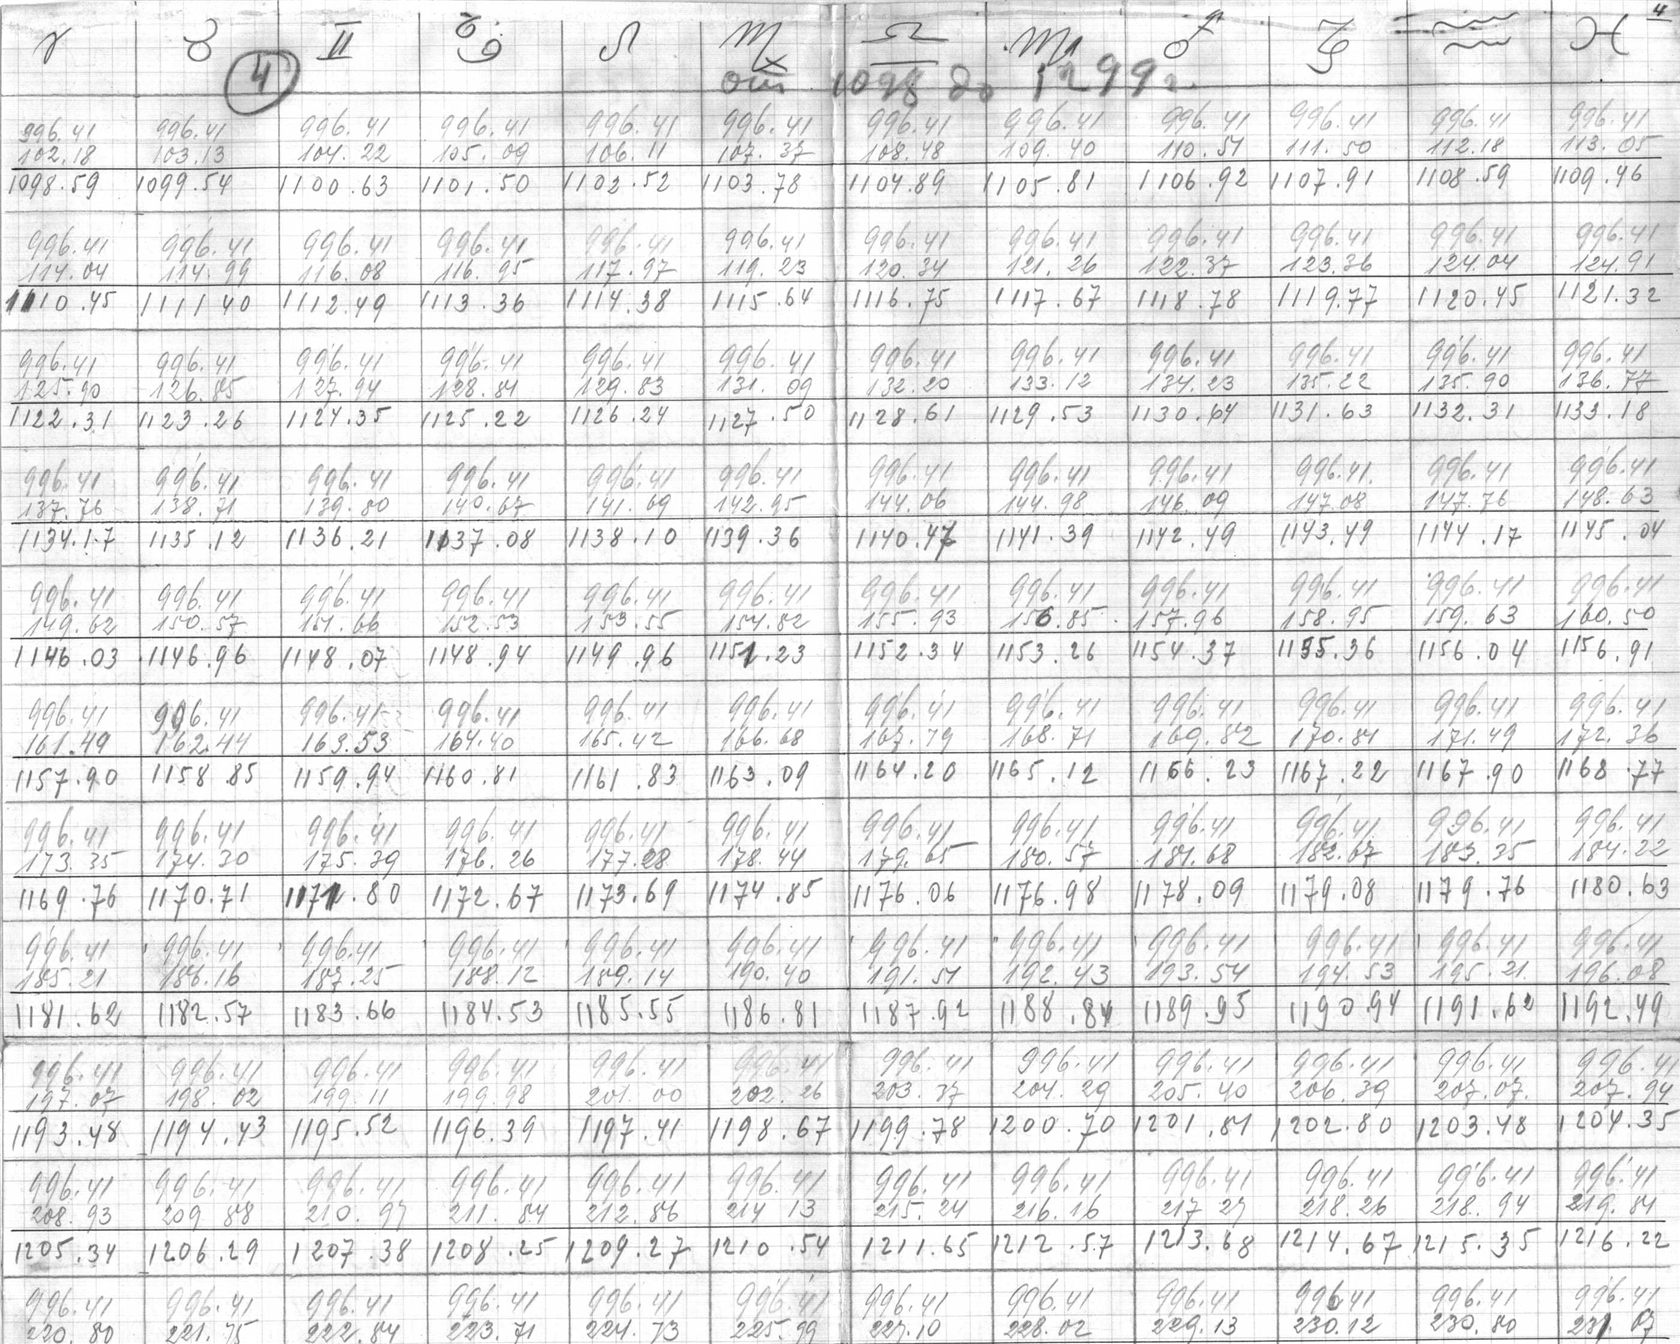 ♈ ♉ II ♋ ♌ ♍ ♎ ♏ ♂ ♑ ♒ ♓ 4
4 от 1098 до 1299г.
996.41 996.41 996.41 996.41 996.41 996.41 996.41 996.41 996.41 996.41 996.41 996.41
102.18 103.13 104.22 105.09 106.11 107.37 108.48 109.40 110.51 111.50 112.18 113.05
1098.59 1099.54 1100.63 1101.50 1102.52 1103.78 1104.89 1105.81 1106.92 1107.91 1108.59 1109.46
996.41 996.41 996.41 996.41 996.41 996.41 996.41 996.41 996.41 996.41 996.41 996.41
114.04 114.99 116.08 116.95 117.97 119.23 120.34 121.26 122.37 123.36 124.04 124.91
1110.45 1111 40 1112.49 1113.36 1114.38 1115.64 1116.75 1117.67 1118.78 1119.77 1120.45 1121.32
996.41 996.41 996.41 996.41 996.41 996.41 996.41 996.41 996.41 996.41 996.41 996.41
125.90 126.85 127.94 128.81 129.83 131.09 132.20 133.12 134.23 135.22 135.90 136.77
1122.31 1123.26 1124.35 1125.22 1126.24 1127.50 1128.61 1129.53 1130.64 1131.63 1132.31 1133.18
996.41 996.41 996.41 996.41 996.41 996.41 996.41 996.41 996.41 996.41 996.41 996.41
137.76 138.71 139.80 140.67 141.69 142.95 144.06 144.98 146.09 147.08 147.76 148.63
1134.17 1135.12 1136.21 1137.08 1138.10 1139.36 1140.47 1141.39 1142.49 1143.49 1144.17 1145.04
996.41 996.41 996.41 996.41 996.41 996.41 996.41 996.41 996.41 996.41 996.41 996.41
149.62 150.57 151.66 152.53 153.55 154.82 155.93 156.85 157.96 158.95 159.63 160.50
1146.03 1146.96 1148.07 1148.94 1149.96 1151.23 1152.34 1153.26 1154.37 1155.36 1156.04 1156.91
996.41 996.41 996.41 996.41 996.41 996.41 996.41 996.41 996.41 996.41 996.41 996.41
161.49 162.44 163.53 164.40 165.42 166.68 167.79 168.71 169.82 170.81 171.49 172.36
1157.90 1158.85 1159.94 1160.81 1161.83 1163.09 1164.20 1165.12 1166.23 1167.22 1167.90 1168.77
996.41 996.41 996.41 996.41 996.41 996.41 996.41 996.41 996.41 996.41 996.41 996.41
173.35 174.30 175.39 176.26 177.28 178.44 179.65 180.57 181.68 182.67 183.35 184.22
1169.76 1170.71 1171.80 1172.67 1173.69 1174.85 1176.06 1176.98 1178.09 1179.08 1179.76 1180.63
996.41 996.41 996.41 996.41 996.41 996.41 996.41 996.41 996.41 996.41 996.41 996.41
185.21 186.16 187.25 188.12 189.14 190.40 191.51 192.43 193.54 194.53 195.21 196.08
1181.62 1182.57 1183.66 1184.53 1185.55 1186.81 1187.92 1188.84 1189.95 1190.94 1191.62 1192.49
996.41 996.41 996.41 996.41 996.41 996.41 996.41 996.41 996.41 996.41 996.41 996.41
197.07 198.02 199.11 199.98 201.00 202.26 203.37 204.29 205.40 206.39 207.07 207.94
1193.48 1194.43 1195.52 1196.39 1197.41 1198.67 1199.78 1200.70 1201.81 1202.80 1203.48 1204.35
996.41 996.41 996.41 996.41 996.41 996.41 996.41 996.41 996.41 996.41 996.41 996.41
208.93 209 88 210.97 211.84 212.86 214 13 215.24 216.16 217 27 218.26 218.94 219.81
1205.34 1206.29 1207.38 1208.25 1209.27 1210.54 1211.65 1212.57 1213.68 1214.67 1215.35 1216.22
996.41 996.41 996.41 996.41 996.41 996.41 996.41 996.41 996.41 996.41 996.41 996.41
220.80 221.75 222.84 223.71 224.73 225.99 227.10 228.02 229.13 230.12 230.80 231.67